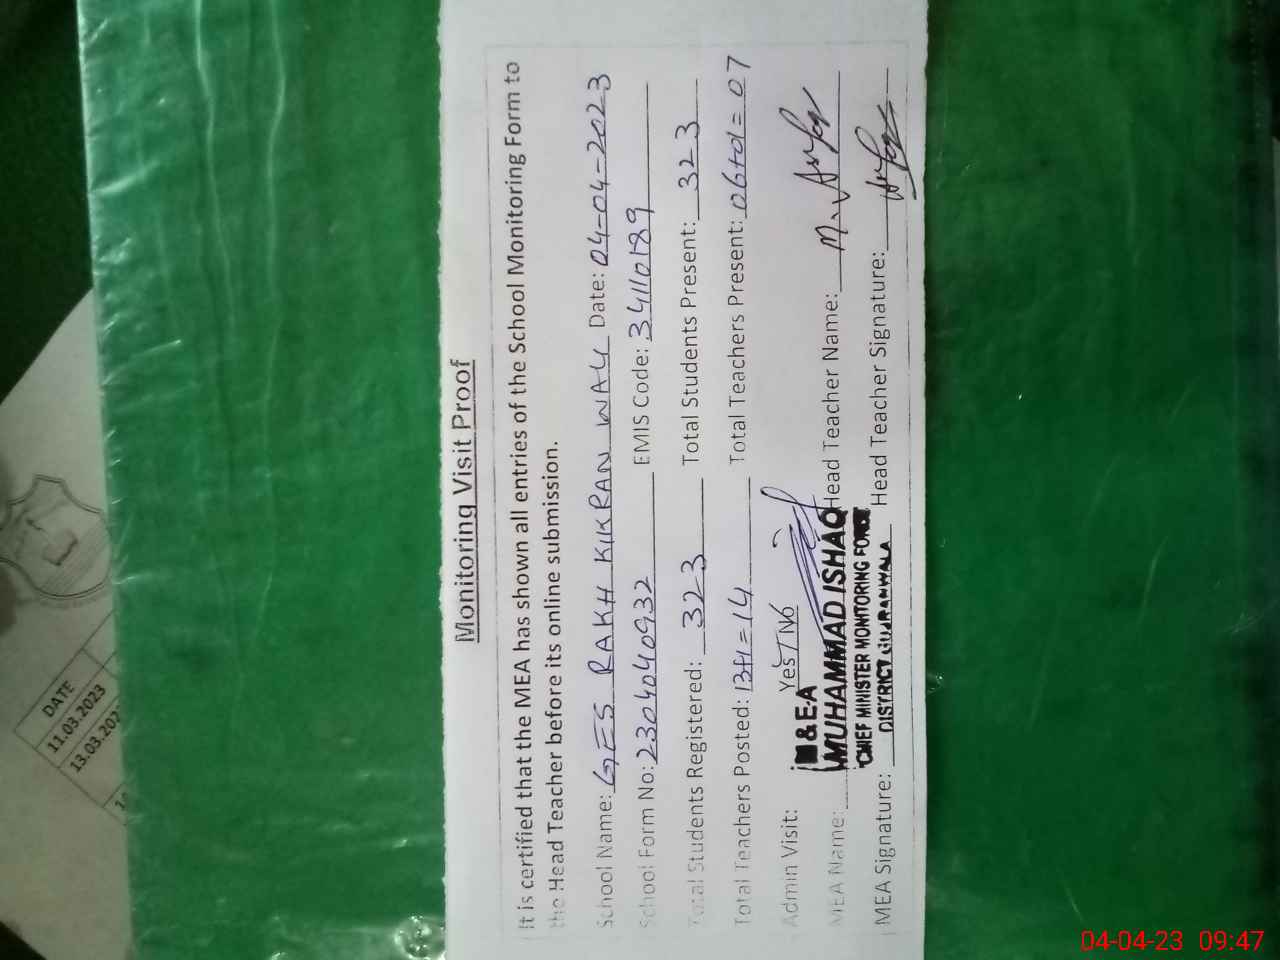 Monitoring Visit Proof
It is certified that the MEA has shown all entries of the School Monitoring Form to
the Head Teacher before its online submission.
School Name: GES RAKH KIKRAN WALI Date: 04-04-2023
School Form No: 2304040932 EMIS Code: 34110189
Total Students Registered: 323 Total Students Present: 323
Total Teachers Posted: 13+1=14 Total Teachers Present: 06+01=07
Admin Visit: Yes / No
M & E.A
MEA Name: MUHAMMAD ISHAQ Head Teacher Name: M.
CHIEF MINISTER MONITORING FORCE
MEA Signature: DISTRICT GUJRANWALA Head Teacher Signature:
DATE
11.03.2023
13.03.202
04-04-23 09:47